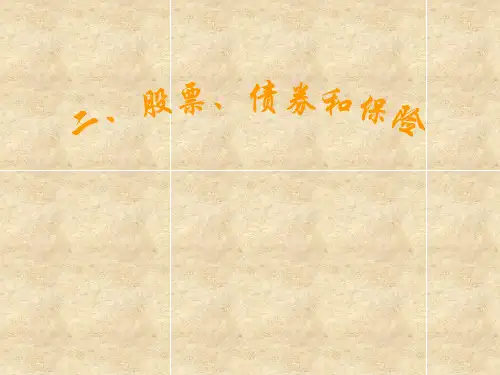 二、股票、债券和保险